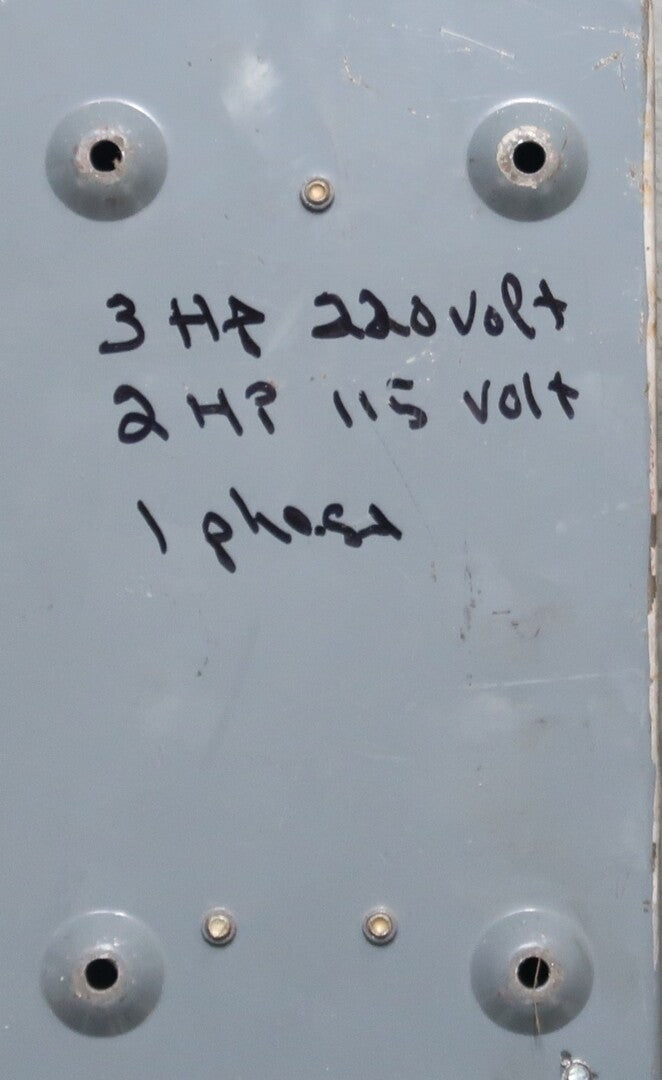 3 HP 220 volt
2 HP 115 volt
1 phase